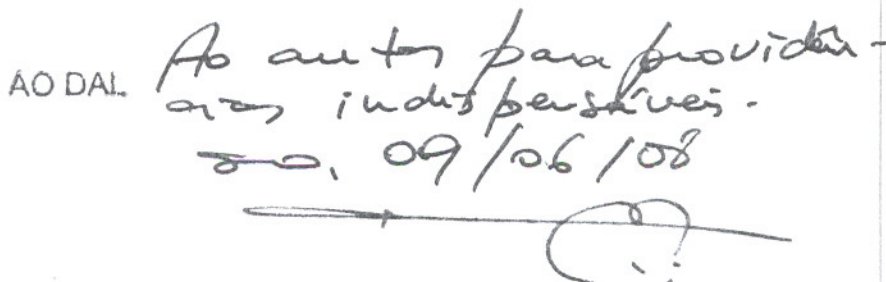 AO DAL Ao autor para providên-
cias indispensáveis.
09/06/08